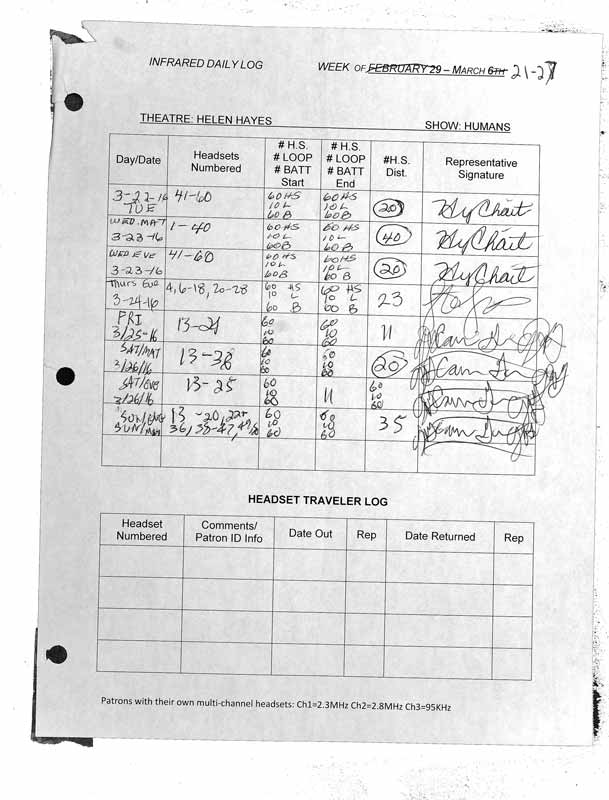 INFRARED DAILY LOG WEEK OF FEBRUARY 29 – MARCH 6TH 21-27
THEATRE: HELEN HAYES SHOW: HUMANS
Day/Date Headsets Numbered # H.S. # LOOP # BATT Start # H.S. # LOOP # BATT End #H.S. Dist. Representative Signature
3-22-16 TUE 41-60 60 HS 10 L 60 B 60 HS 10 L 60 B 20
WED. MAT 3-23-16 1-40 60 HS 10 L 60 B 60 HS 10 L 60 B 40
WED EVE 3-23-16 41-60 60 HS 10 L 60 B 60 HS 10 L 60 B 20
Thurs Eve 3-24-16 4, 6-18, 20-28 60 HS 10 L 60 B 60 HS 10 L 60 B 23
FRI 3/25-16 13-21 60 10 60 60 10 60 11
SAT/MAT 3/26/16 60 10 60 10 60 20
SAT/EVE 3/26/16 13-25 60 10 60 11 60 10 60
SUN/MAT 13-20, 60 10 60 60 10 60 35
HEADSET TRAVELER LOG
Headset Numbered Comments/ Patron ID Info Date Out Rep Date Returned Rep
Patrons with their own multi-channel headsets: Ch1=2.3MHz Ch2=2.8MHz Ch3=95KHz